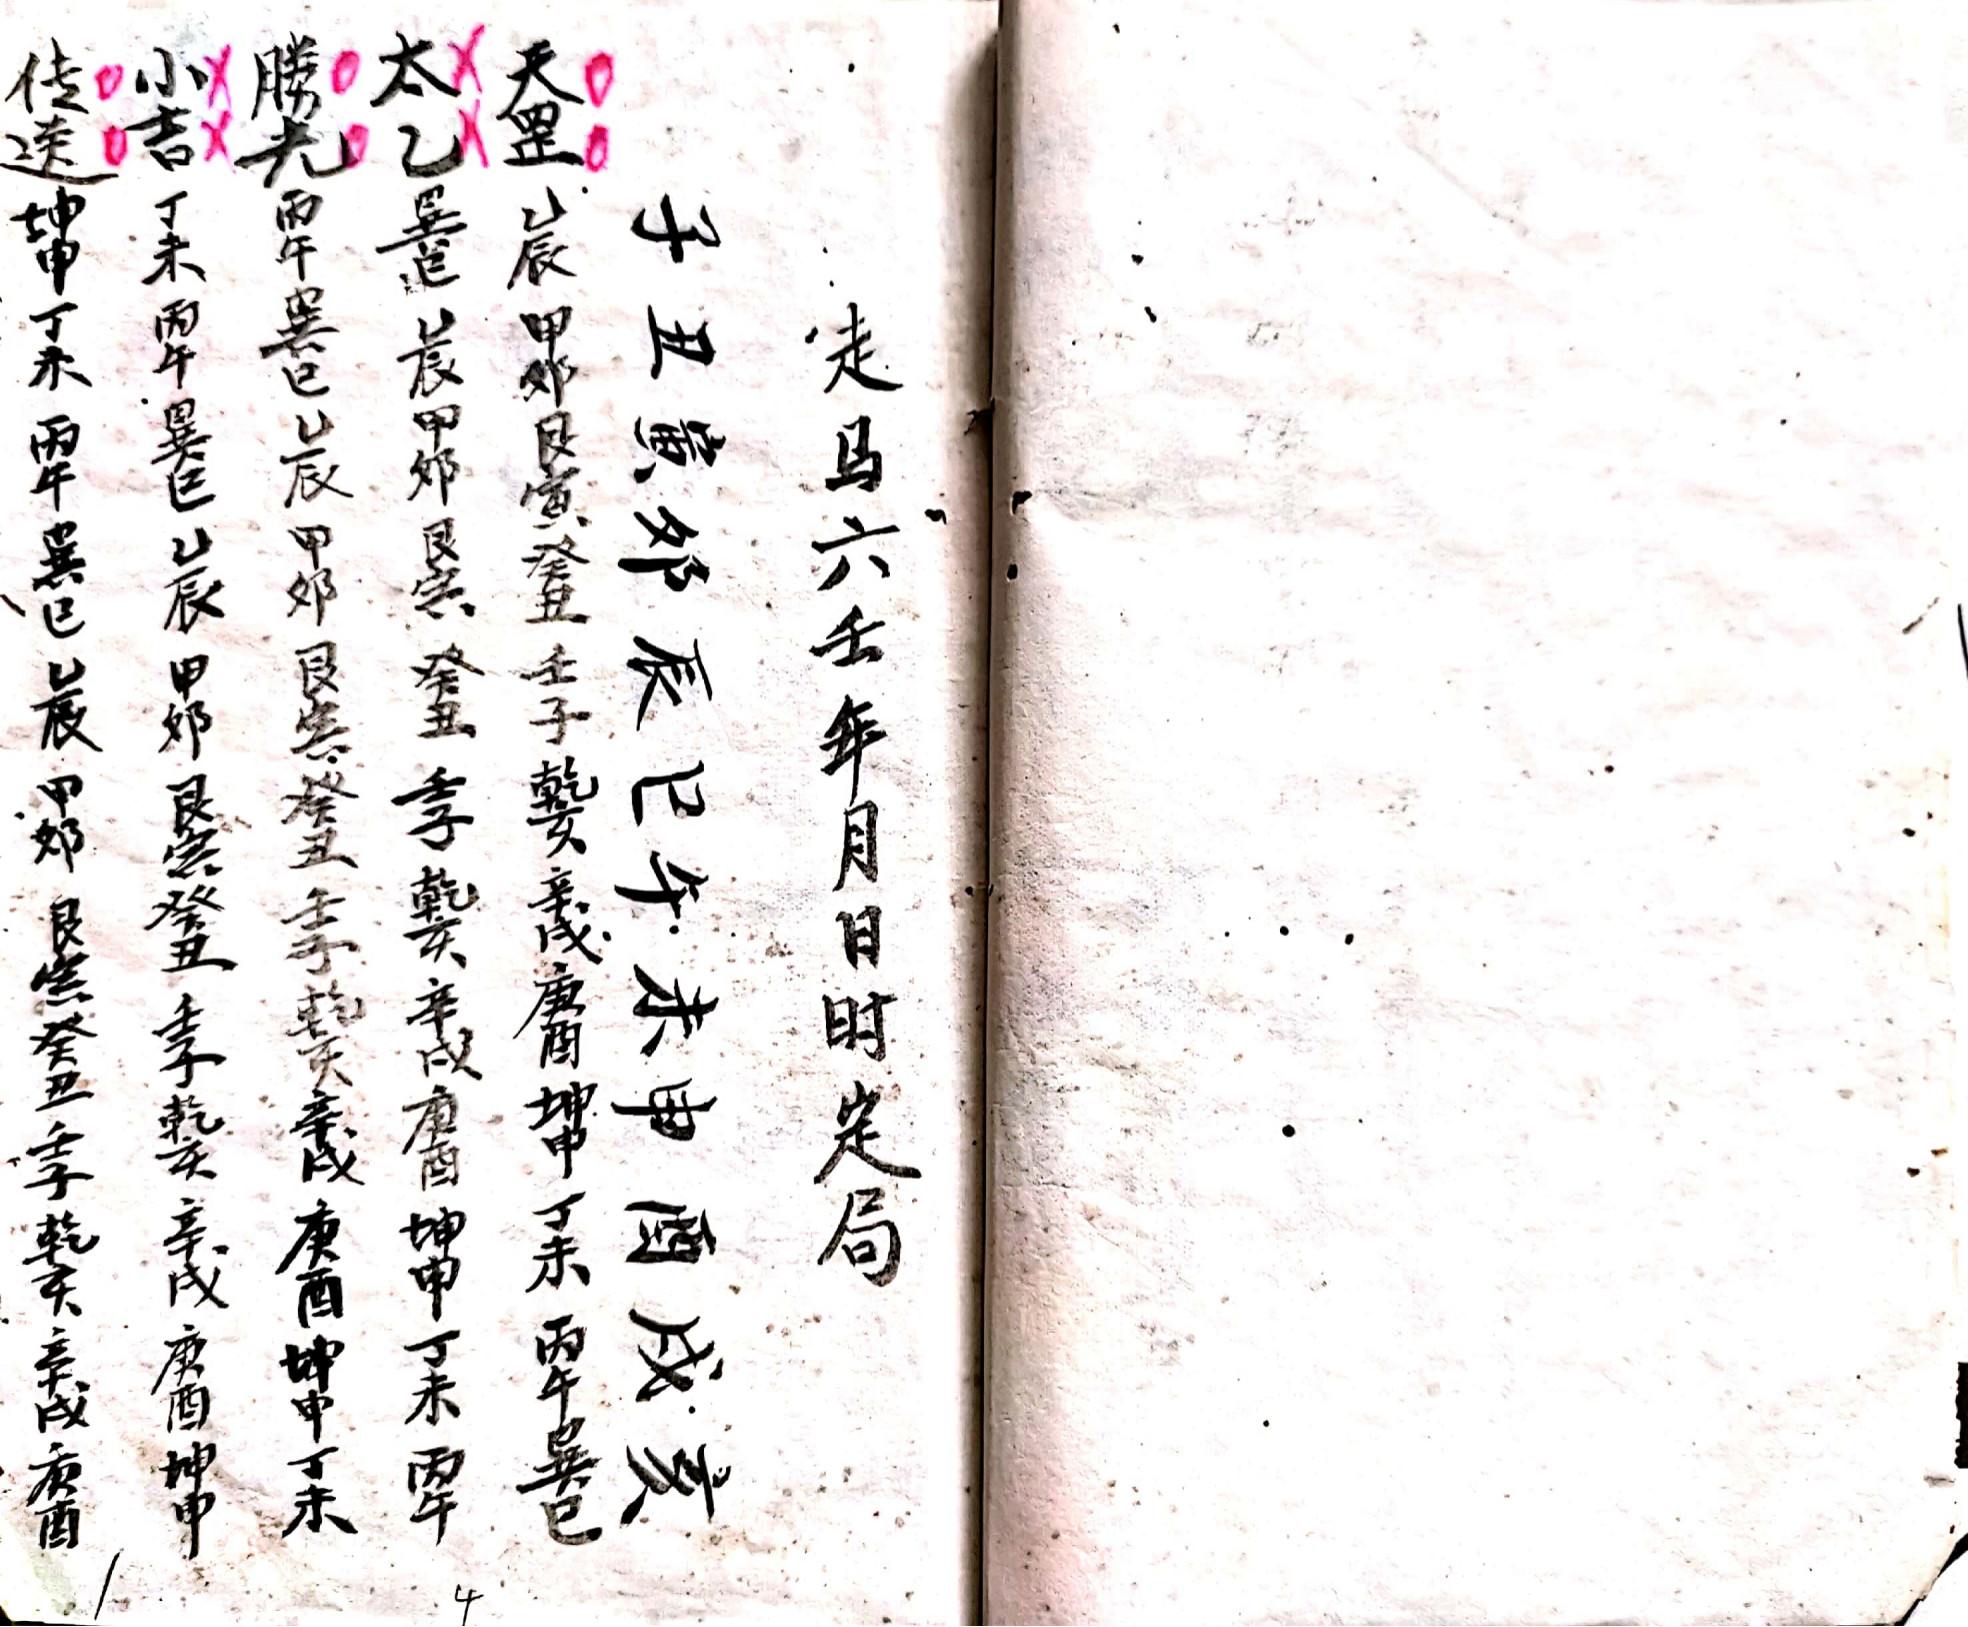 走马六壬年月日时定局
子丑寅卯辰巳午未申酉戌亥
天罡乙辰甲卯艮寅癸丑壬子乾亥辛戌庚酉坤申丁未丙午巽巳
太乙巽巳乙辰甲卯艮寅癸丑壬子乾亥辛戌庚酉坤申丁未丙午
勝光丙午巽巳乙辰甲卯艮寅癸丑壬子乾亥辛戌庚酉坤申丁未
小吉丁未丙午巽巳乙辰甲卯艮寅癸丑壬子乾亥辛戌庚酉坤申
传送坤申丁未丙午巽巳乙辰甲卯艮寅癸丑壬子乾亥辛戌庚酉
4